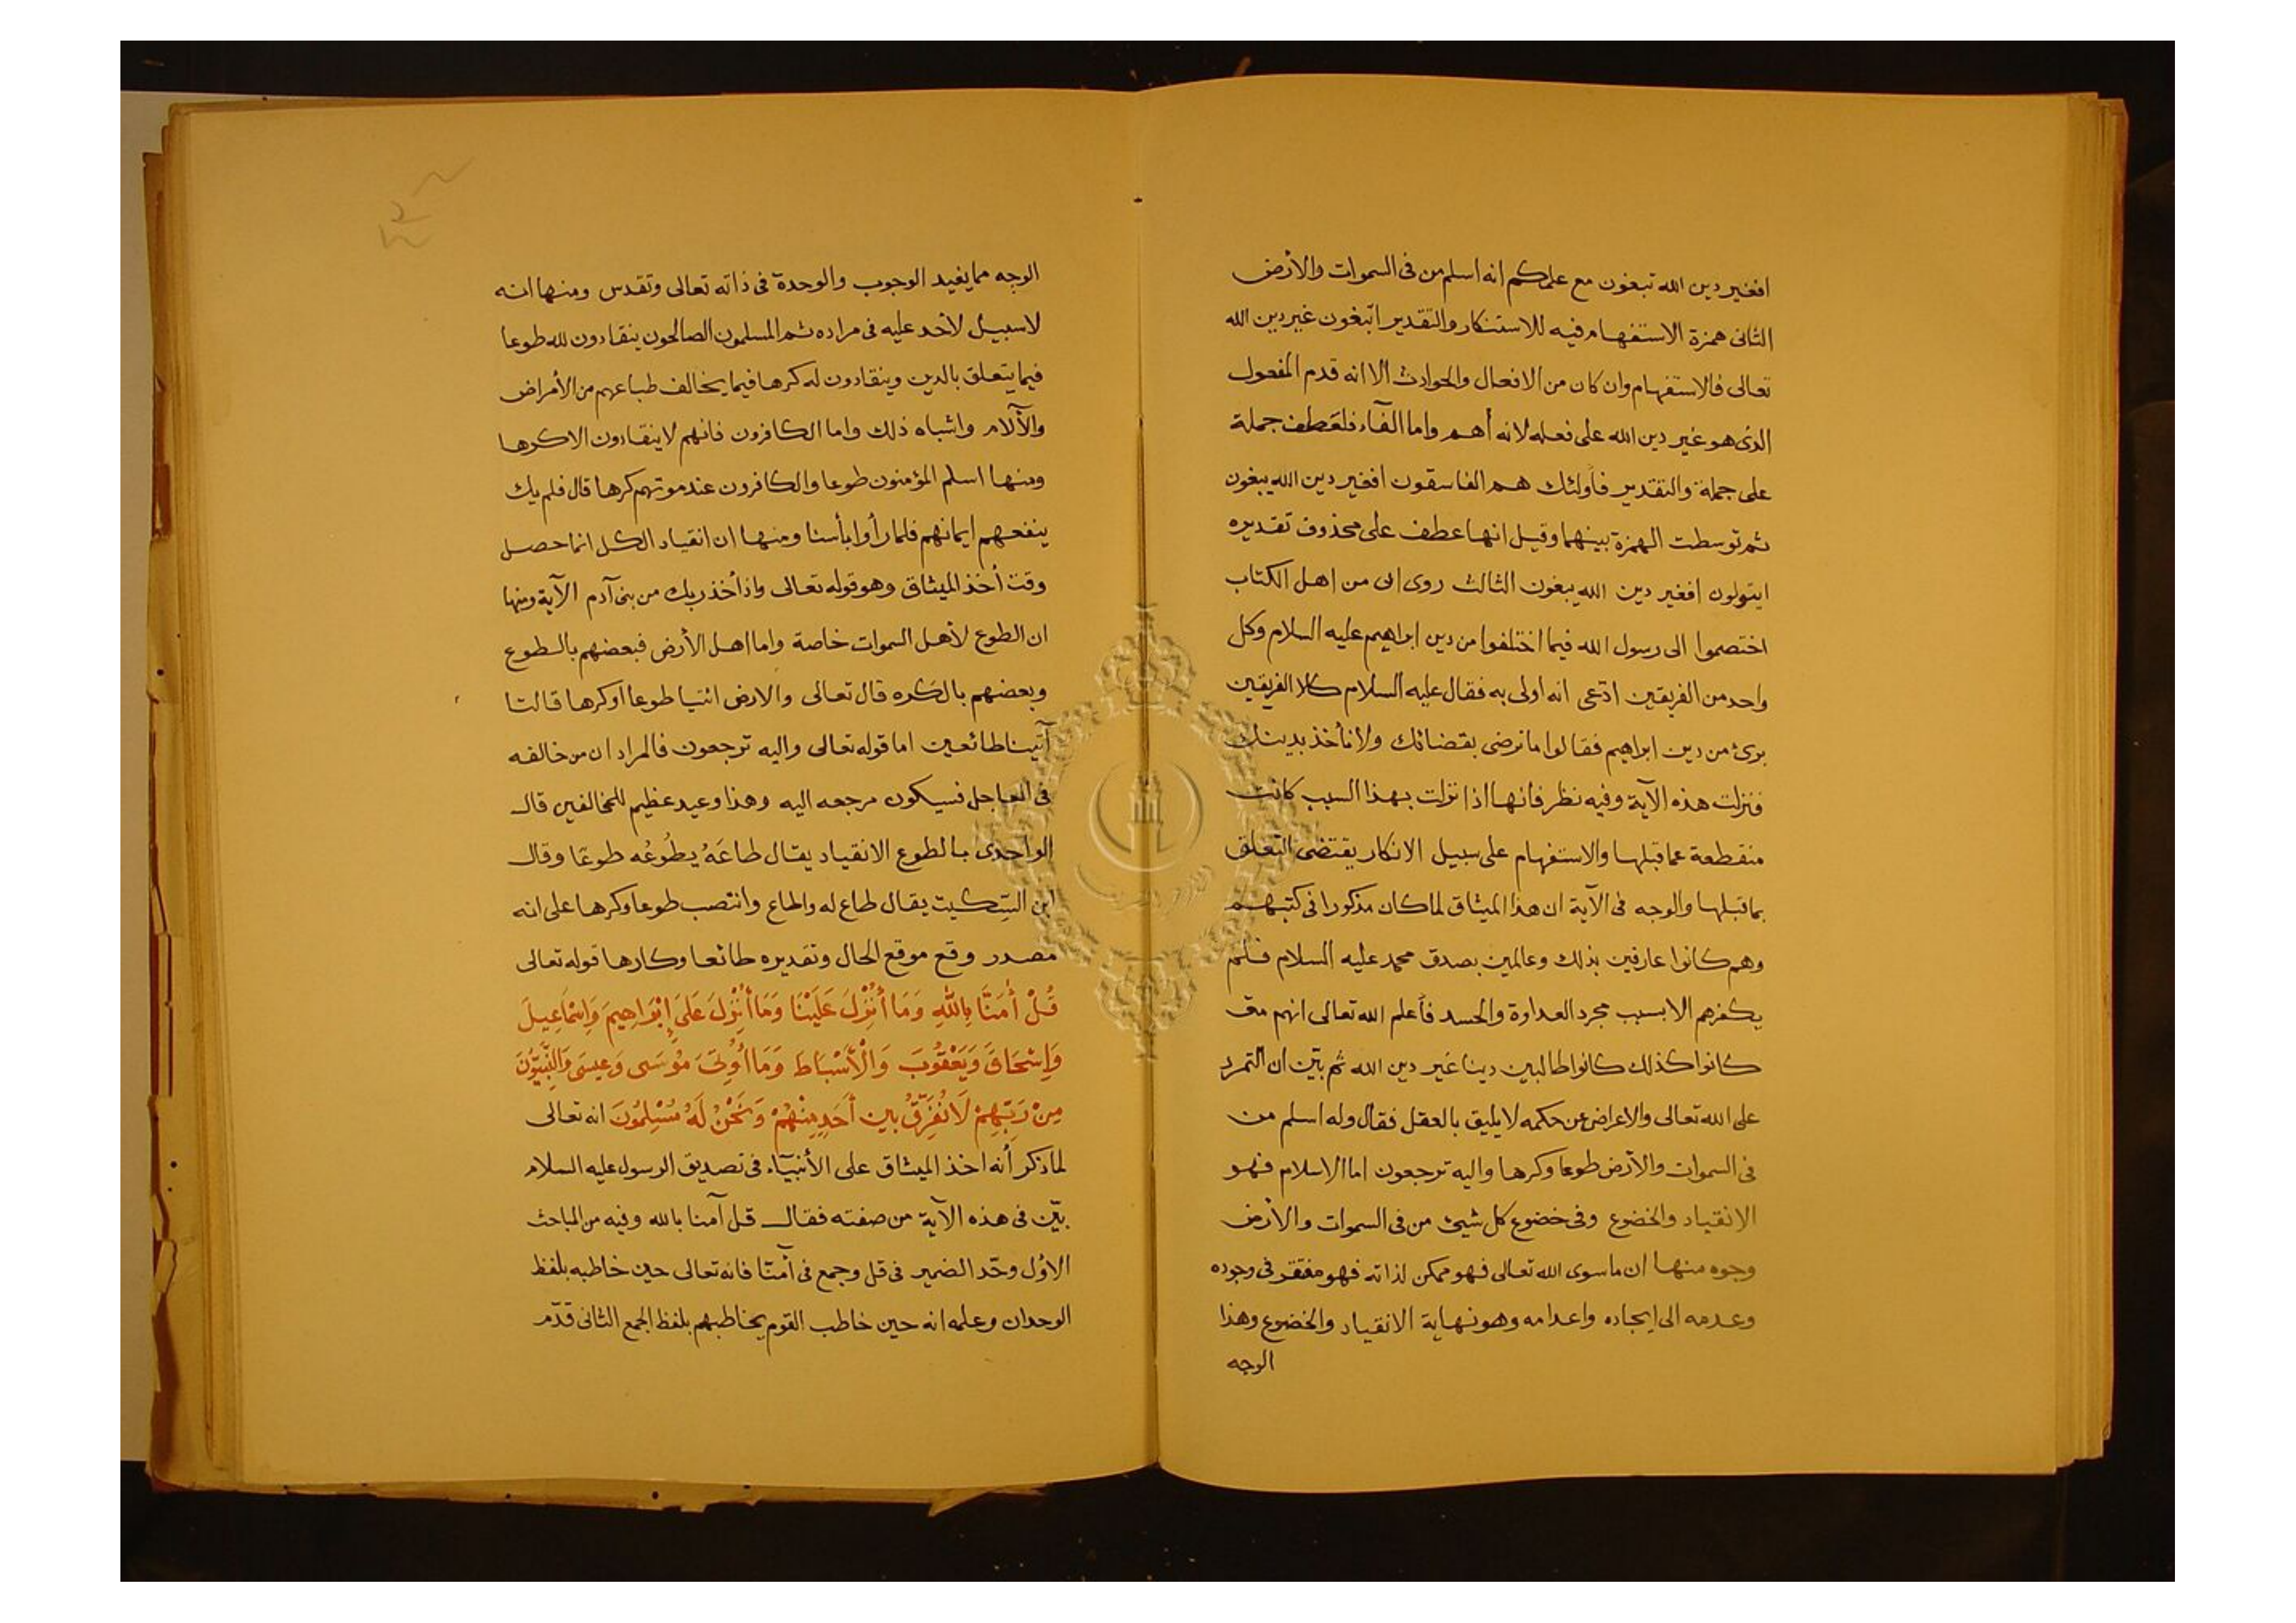 افغير دين الله تبغون مع علمكم انه اسلم من فى السموات والأرض
الثانى همزة الاستفهام فيه للاستنكار والتقدير اتبغون غير دين الله
تعالى فالاستفهام وان كان من الافعال والحوادث الا انه قدم المفعول
الذى هو غير دين الله على فعله لانه أهم واما الفآء فلعطف جملة
على جملة والتقدير فأولئك هم الفاسقون افغير دين الله يبغون
ثم توسطت الهمزة بينهما وقيل انها عطف على محذوف تقديره
ايتولون افغير دين الله يبغون الثالث روى ان من اهل الكتاب
اختصموا الى رسول الله فيما اختلفوا من دين ابراهيم عليه السلام وكل
واحد من الفريقين ادّعى انه اولى به فقال عليه السلام كلا الفريقين
برئ من دين ابراهيم فقالوا ما نرضى بقضائك ولا نأخذ بدينك
فنزلت هذه الآية وفيه نظر فانها اذا نزلت بهذا السبب كانت
منقطعة عما قبلها والاستفهام على سبيل الانكار يقتضى التعلق
بما قبلها والوجه فى الآية ان هذا الميثاق لما كان مذكورا فى كتبهم
وهم كانوا عارفين بذلك وعالمين بصدق محمد عليه السلام فلم
يكفرهم الا بسبب مجرد العداوة والحسد فأعلم الله تعالى انهم متى
كانوا كذلك كانوا طالبين دينا غير دين الله ثم بيّن ان التمرد
على الله تعالى والاعراض عن حكمه لا يليق بالعقل فقال وله اسلم من
فى السموات والأرض طوعا وكرها واليه ترجعون اما الاسلام فهو
الانقياد والخضوع وفى خضوع كل شيئ من فى السموات والأرض
وجوه منها ان ما سوى الله تعالى فهو ممكن لذاته فهو مفتقر فى وجوده
وعدمه الى ايجاده واعدامه وهو نهاية الانقياد والخضوع وهذا
الوجه
الوجه مما يفيد الوجوب والوحدة فى ذاته تعالى وتقدس ومنها انه
لا سبيل لأحد عليه فى مراده ثم المسلمون الصالحون ينقادون لله طوعا
فيما يتعلق بالدين وينقادون له كرها فيما يخالف طباعهم من الأمراض
والآلام واشباه ذلك واما الكافرون فانهم لا ينقادون الا كرها
ومنها اسلم المؤمنون طوعا والكافرون عند موتهم كرها قال فلم يك
ينفعهم ايمانهم فلما رأوا بأسنا ومنها ان انقياد الكل انما حصل
وقت أخذ الميثاق وهو قوله تعالى واذ أخذ ربك من بنى آدم الآية ومنها
ان الطوع لأهل السموات خاصة واما اهل الأرض فبعضهم بالطوع
وبعضهم بالكره قال تعالى والارض ائتيا طوعا او كرها قالتا
آتينا طائعين اما قوله تعالى واليه ترجعون فالمراد ان من خالفه
فى العاجل فسيكون مرجعه اليه وهذا وعيد عظيم للمخالفين قال
الواحدى بالطوع الانقياد يقال طاعَهُ يطُوعُه طوعًا وقال
ابن السّكيت يقال طاع له واطاع وانتصب طوعا وكرها على انه
مصدر وقع موقع الحال وتقديره طائعا وكارها قوله تعالى
قُلْ أمَنَّا بِاللَّهِ وَمَا أُنْزِلَ عَلَيْنَا وَمَا أُنْزِلَ عَلَى إِبْرَاهِيمَ وَإِسْمَاعِيلَ
وَإِسْحَاقَ وَيَعْقُوبَ وَالْأَسْبَاط وَمَا أُوتِىَ مُوسَى وَعِيسَى وَالنَّبِيُّونَ
مِنْ رَبِّهِمْ لَا نُفَرِّقُ بين أَحَدٍ مِنْهُمْ وَنَحْنُ لَهُ مُسْلِمُونَ انه تعالى
لما ذكر أنه اخذ الميثاق على الأنبيآء فى تصديق الرسول عليه السلام
بيّن فى هذه الآية من صفته فقال قل آمنا بالله وفيه من المباحث
الاوّل وحّد الضمير فى قل وجمع فى آمنّا فانه تعالى حين خاطبه بلفظ
الوحدان وعلمه انه حين خاطب القوم يخاطبهم بلفظ الجمع الثانى قدّم